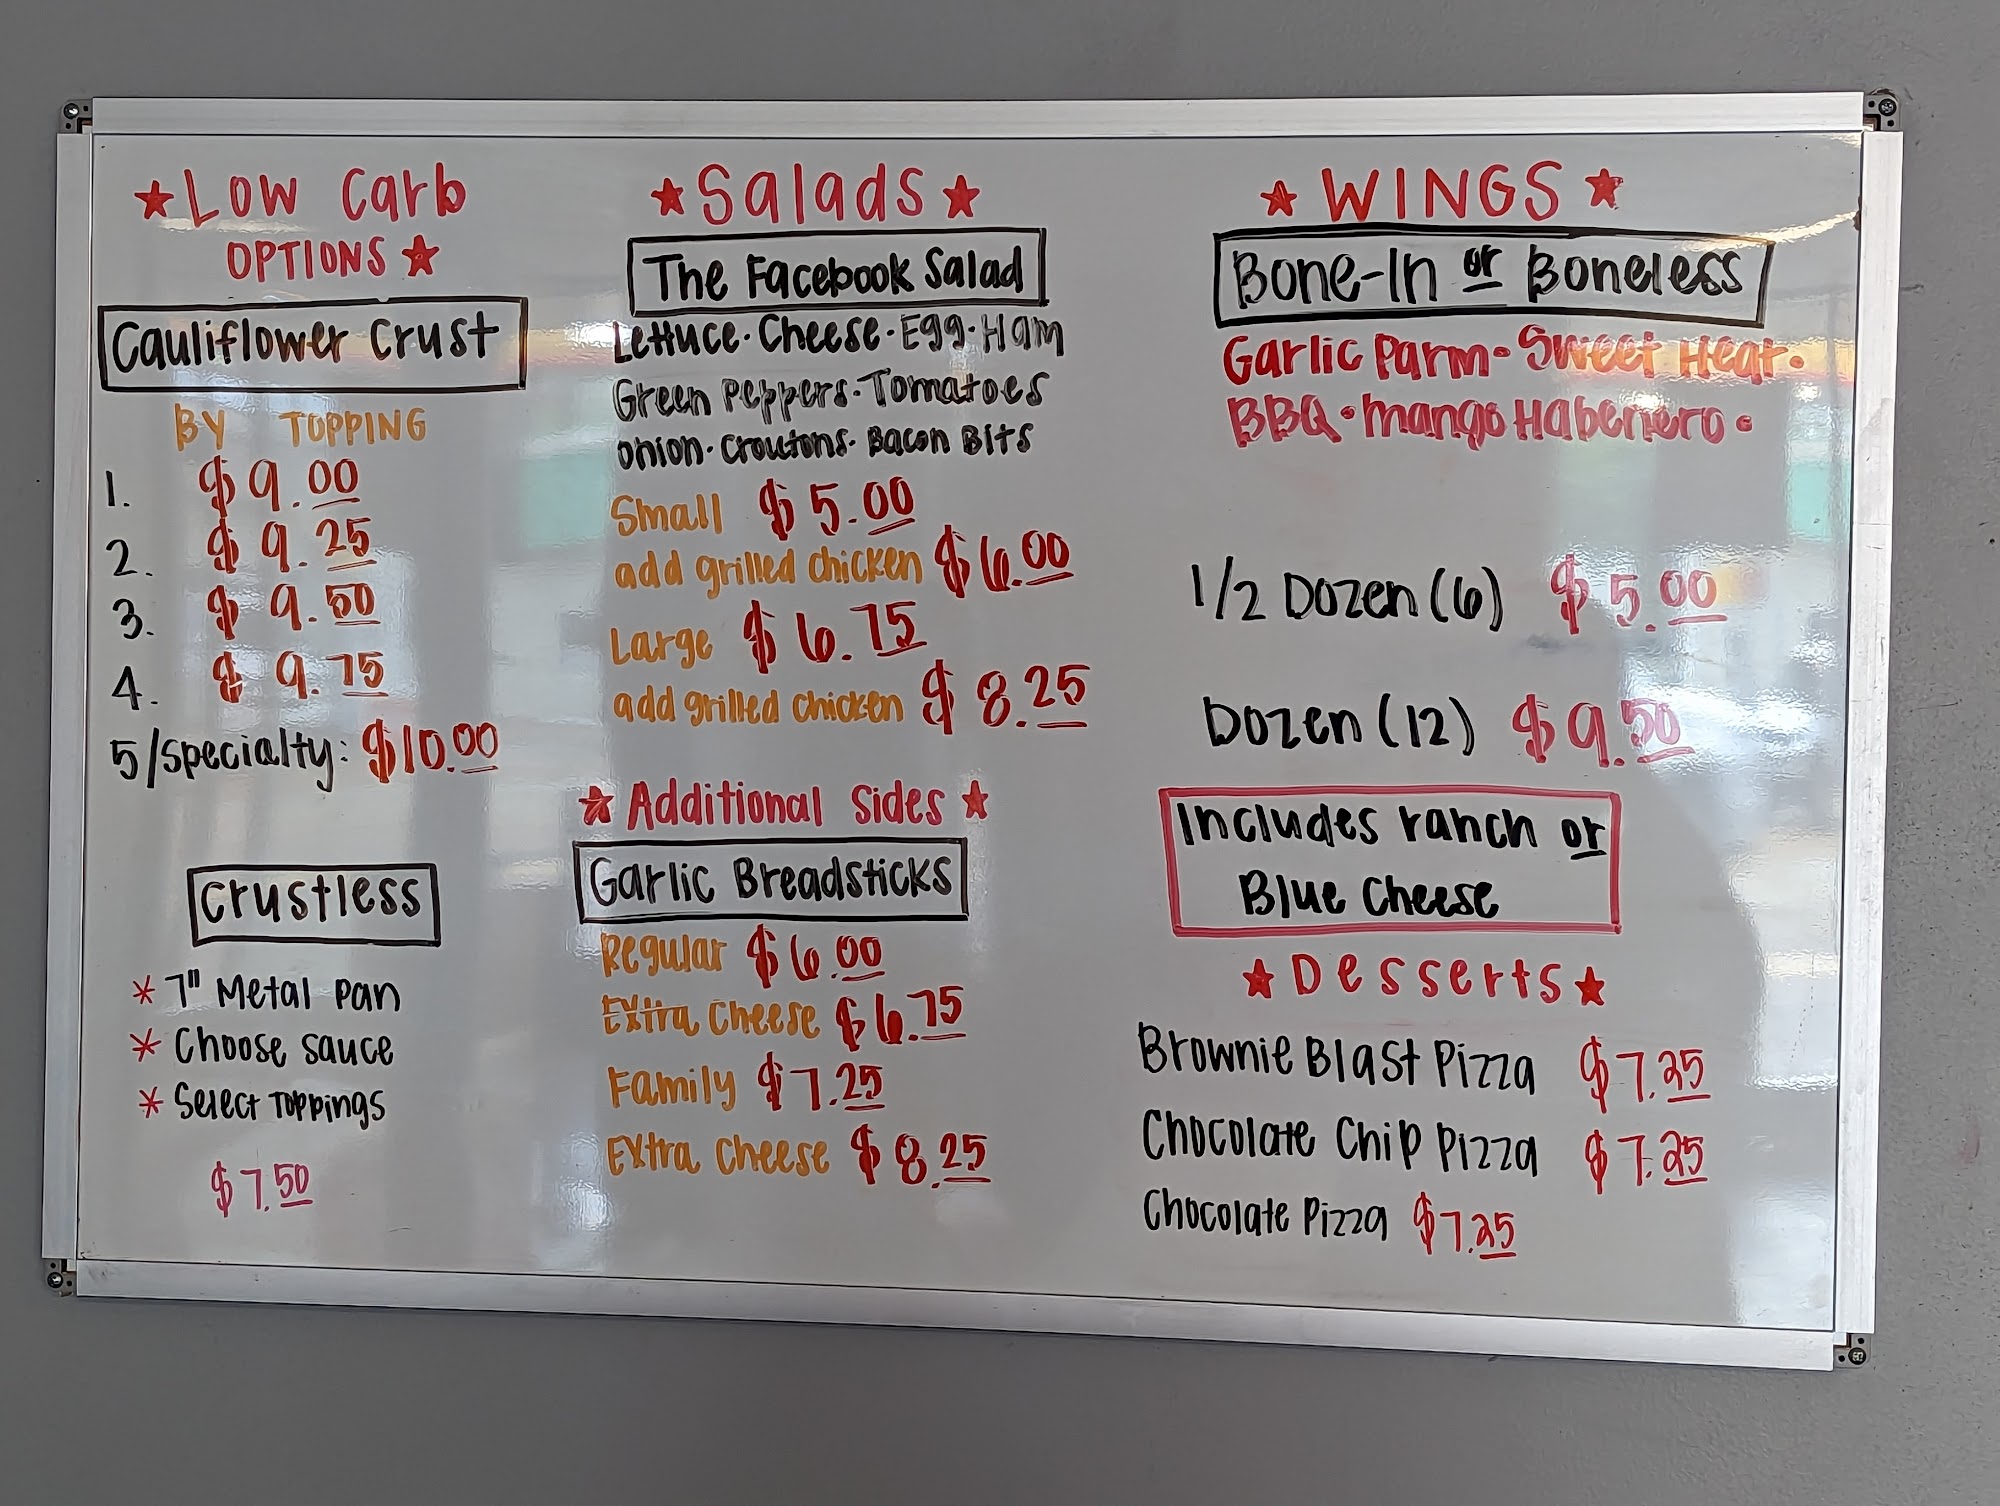 ★ Low Carb
OPTIONS ★
Cauliflower Crust
BY TOPPING
1. $9.00
2. $9.25
3. $9.50
4. $9.75
5/specialty: $10.00
Crustless
* 7" Metal pan
* Choose sauce
* Select Toppings
$7.50
★ Salads ★
The Facebook Salad
Lettuce · Cheese · Egg · Ham
Green Peppers · Tomatoes
Onion · Croutons · Bacon Bits
Small $5.00
add grilled chicken $6.00
Large $6.75
add grilled chicken $8.25
★ Additional Sides ★
Garlic Breadsticks
Regular $6.00
Extra Cheese $6.75
Family $7.25
Extra Cheese $8.25
★ WINGS ★
Bone-In or Boneless
Garlic Parm · Sweet Heat ·
BBQ · Mango Habenero ·
1/2 Dozen (6) $5.00
Dozen (12) $9.50
Includes ranch or
Blue Cheese
★ Desserts ★
Brownie Blast Pizza $7.25
Chocolate Chip Pizza $7.25
Chocolate Pizza $7.25